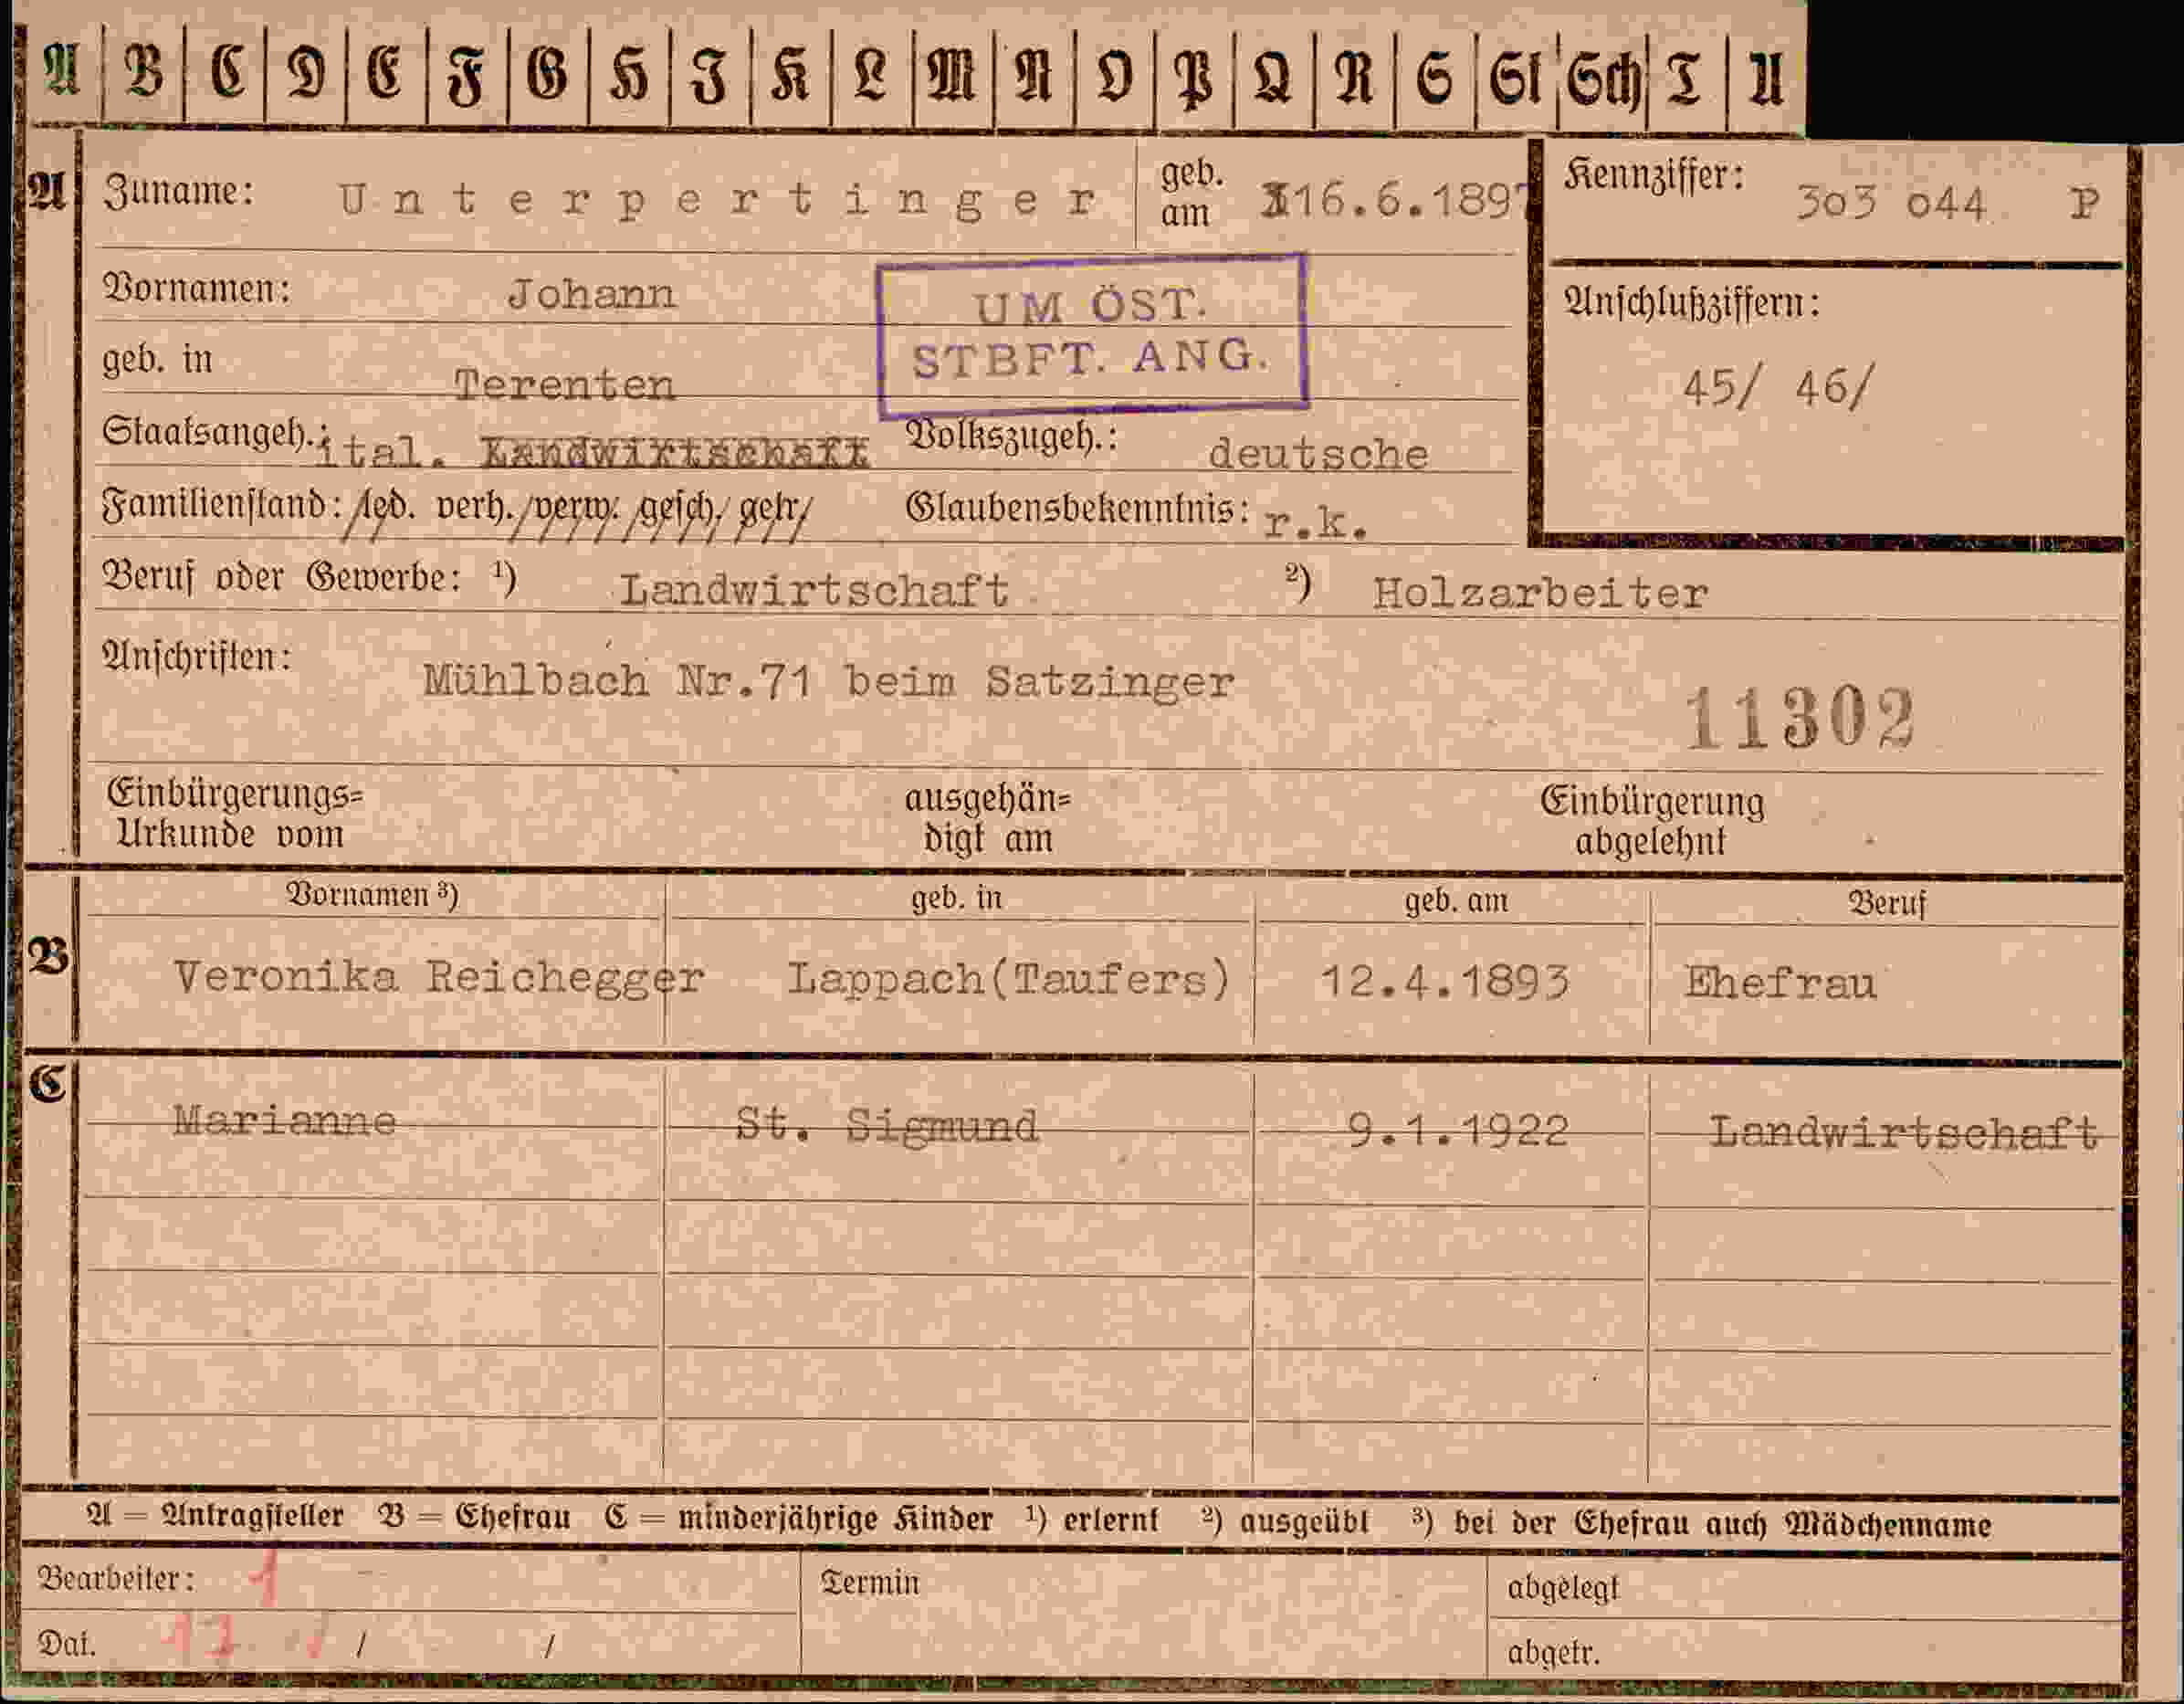 A B C D E F G H I K L M N O P Q R S St Sch T U
A Zuname: Unterpertinger geb. am 16.6.1897 Kennziffer: 303 044 P
Vornamen: Johann UM ÖST. STBFT. ANG. Anschlußziffern:
geb. in Terenten 45/ 46/
Staatsangeh.: ital. Landwirtschaft Volkszugeh.: deutsche
Familienstand: led. verh. verw. gesch. getr. Glaubensbekenntnis: r.k.
Beruf oder Gewerbe: ¹) Landwirtschaft ²) Holzarbeiter
Anschriften: Mühlbach Nr.71 beim Satzinger
11302
Einbürgerungs= ausgehän= Einbürgerung
Urkunde vom digt am abgelehnt
Vornamen ³) geb. in geb. am Beruf
B Veronika Reichegger Lappach(Taufers) 12.4.1893 Ehefrau
C Marianne St. Sigmund 9.1.1922 Landwirtschaft
A = Antragsteller B = Ehefrau C = minderjährige Kinder ¹) erlernt ²) ausgeübt ³) bei der Ehefrau auch Mädchenname
Bearbeiter: 1 Termin abgelegt
Dat. / / abgetr.